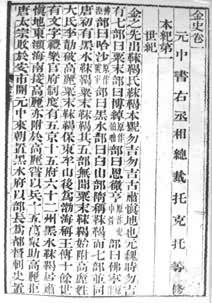 金史卷
元中書右丞相總裁托克托等修
本紀第一
世紀
金史先出靺鞨氏靺鞨本號勿吉勿吉古肅慎地也元魏時勿吉
有七部曰粟末部曰博綽原作部曰恩徹亨原作部曰佛寧
部曰哈沙原作部曰黑水部曰白山部隋稱靺鞨而七部並同
唐初有黑水靺鞨粟末靺鞨其五部無聞粟末靺鞨始附高麗姓
大氏李勣破高麗粟末靺鞨保東牟山後為渤海稱王傳十餘世
有文字禮樂官府制度有五京十五府六十二州黑水靺鞨居肅
慎地東瀕海南接高麗亦附於高麗嘗以兵十五萬眾助高麗拒
唐太宗敗於安市開元中來朝置黑水府以部長為都督刺史置